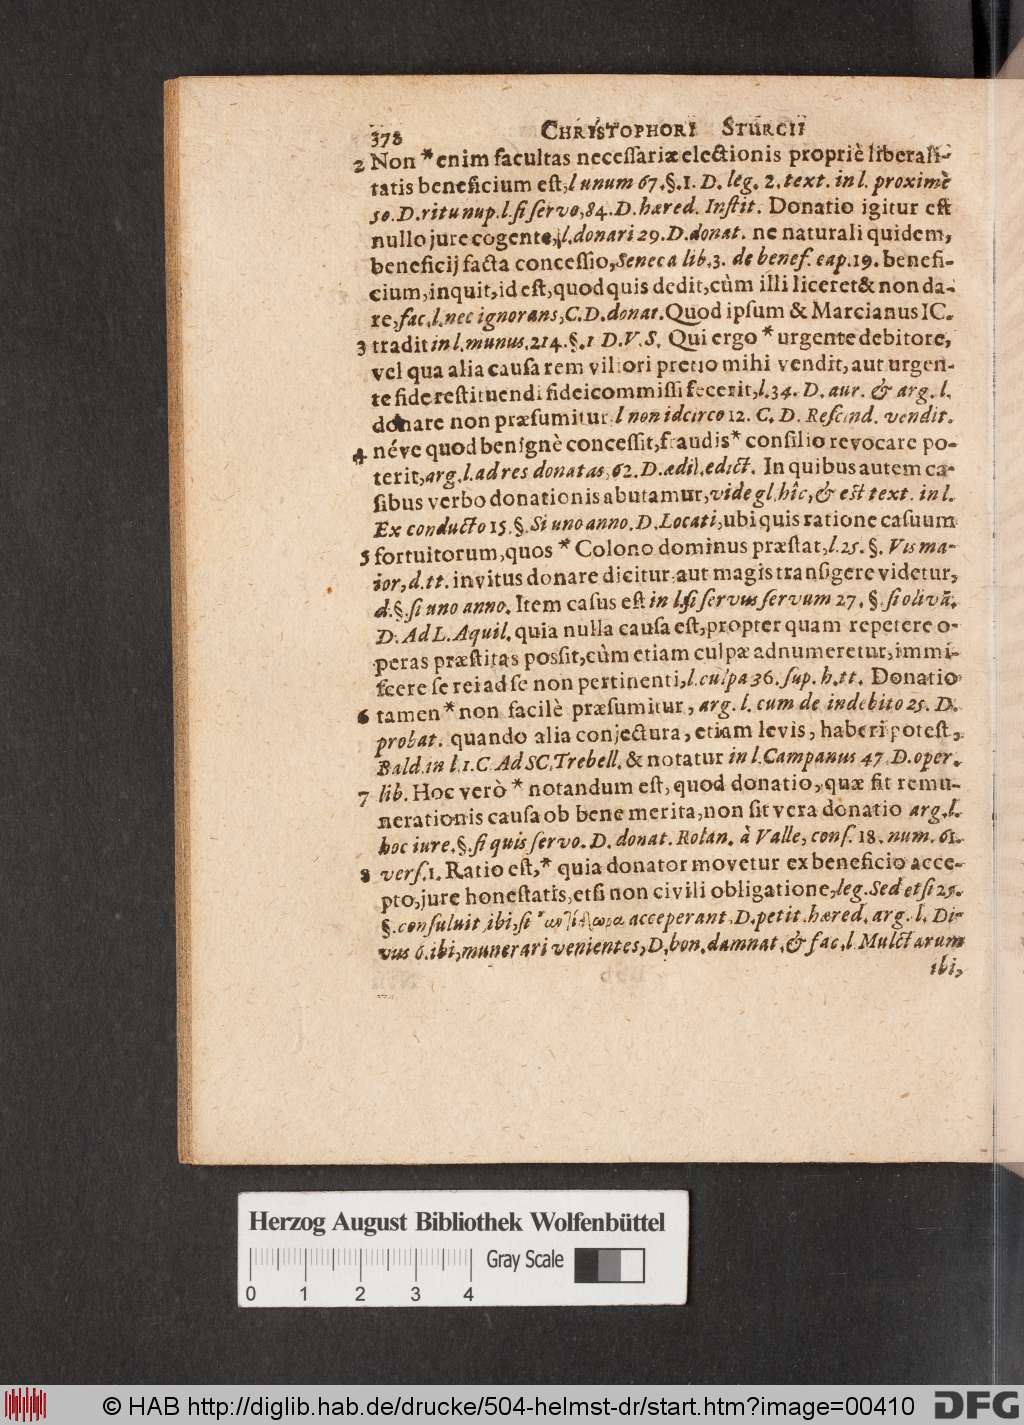 378 CHRISTOPHORI STURCII
2 Non * enim facultas necessariæ electionis propriè liberali-
tatis beneficium est, l unum 67. §. 1. D. leg. 2. text. in l. proximè
50. D. ritu nup. l. si servo, 84. D. hæred. Instit. Donatio igitur est
nullo jure cogente, l. donari 29. D. donat. ne naturali quidem,
beneficij facta concessio, Seneca lib. 3. de benef. cap. 19. benefi-
cium, inquit, id est, quod quis dedit, cùm illi liceret & non da-
re, fac. l. nec ignorans, C. D. donat. Quod ipsum & Marcianus IC.
3 tradit in l. munus. 214. §. 1 D. V. S. Qui ergo * urgente debitore,
vel qua alia causa rem viliori pretio mihi vendit, aut urgen-
te fide restituendi fideicommissi fecerit, l. 34. D. aur. & arg. l.
donare non præsumitur l non idcirco 12. C. D. Rescind. vendit.
4 néve quod benignè concessit, fraudis * consilio revocare po-
terit, arg. l. ad res donatas, 62. D. ædil. edict. In quibus autem ca-
sibus verbo donationis abutamur, vide gl. hîc, & est text. in l.
Ex conducto 15. §. Si uno anno. D. Locati, ubi quis ratione casuum
5 fortuitorum, quos * Colono dominus præstat, l. 25. §. Vis ma-
ior, d. tt. invitus donare dicitur, aut magis transigere videtur,
d. §. si uno anno. Item casus est in l. si servus servum 27. §. si olivã.
D. Ad L. Aquil. quia nulla causa est, propter quam repetere o-
peras præstitas possit, cùm etiam culpæ adnumeretur, immi-
scere se rei ad se non pertinenti, l. culpa 36. sup. h. tt. Donatio
6 tamen * non facilè præsumitur, arg. l. cum de indebito 25. D.
probat. quando alia conjectura, etiam levis, haberi potest,
Bald. in l. 1. C. Ad SC. Trebell. & notatur in l. Campanus 47. D. oper.
7 lib. Hoc verò * notandum est, quod donatio, quæ fit remu-
nerationis causa ob bene merita, non sit vera donatio arg. l.
hoc iure. §. si quis servo. D. donat. Rolan. à Valle, cons. 18. num. 61.
8 vers. 1. Ratio est, * quia donator movetur ex beneficio acce-
pto, jure honestatis, etsi non civili obligatione, leg. Sed etsi 25.
§. consuluit ibi, si acceperant, D. petit. hæred. arg. l. Di-
vus 6. ibi, munerari venientes, D. bon. damnat. & fac. l Mulctarum
ibi,
Herzog August Bibliothek Wolfenbüttel
Gray Scale
0 1 2 3 4
© HAB http://diglib.hab.de/drucke/504-helmst-dr/start.htm?image=00410
DFG